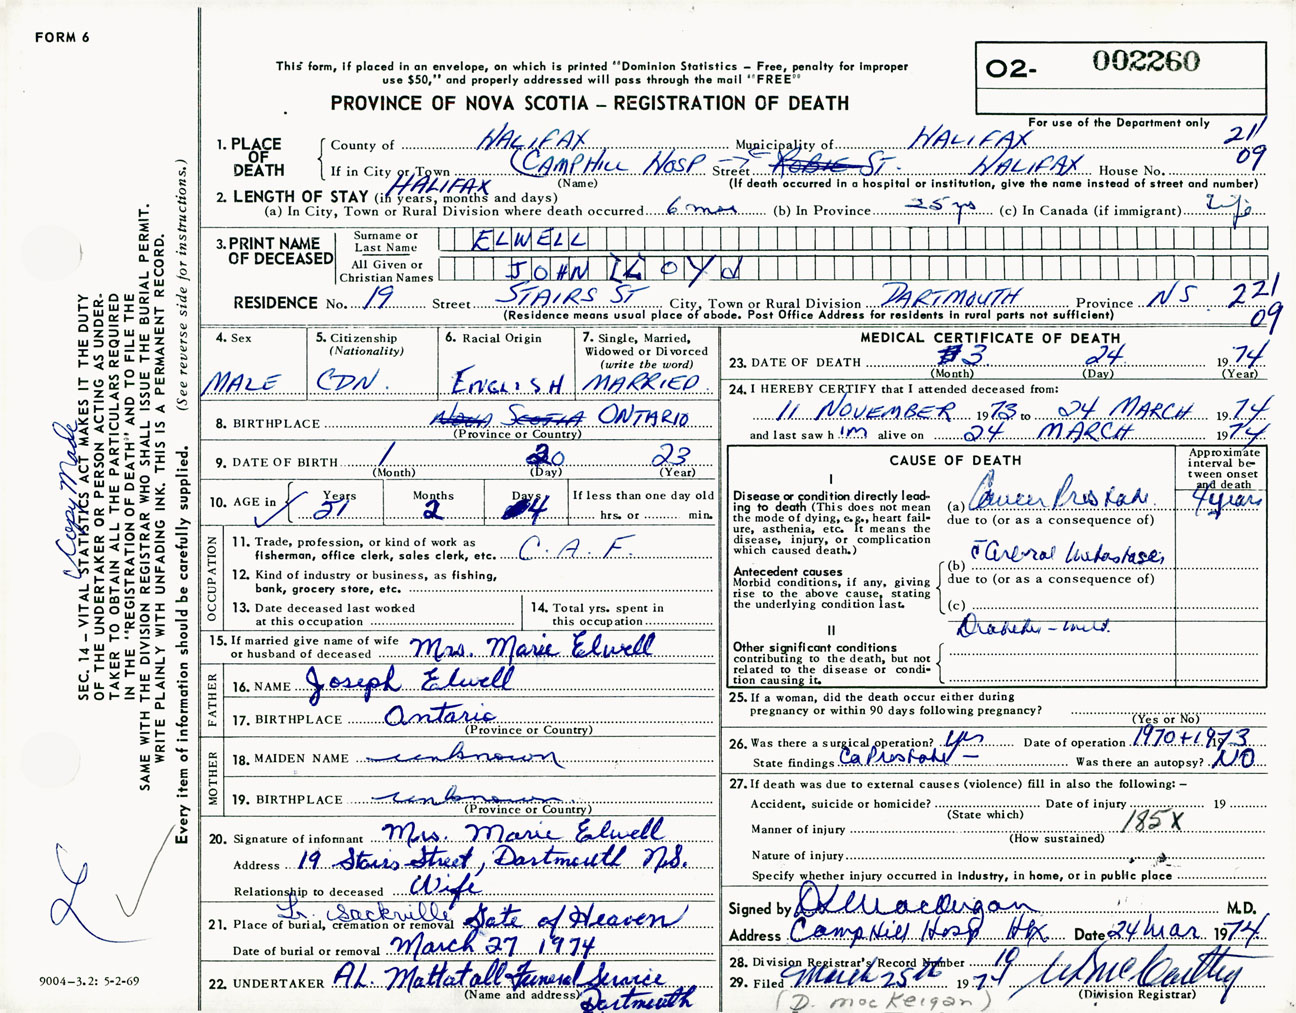 FORM 6
This form, if placed in an envelope, on which is printed "Dominion Statistics – Free, penalty for improper
use $50," and properly addressed will pass through the mail "FREE"
PROVINCE OF NOVA SCOTIA – REGISTRATION OF DEATH
O2- 002260
For use of the Department only
21/
09
1. PLACE OF DEATH
County of HALIFAX Municipality of HALIFAX
If in City or Town HALIFAX (CAMPHILL HOSP → Street ROBIE ST. HALIFAX House No.
(Name) (If death occurred in a hospital or institution, give the name instead of street and number)
2. LENGTH OF STAY (in years, months and days)
(a) In City, Town or Rural Division where death occurred 6 mos (b) In Province 25 yrs (c) In Canada (if immigrant) Life
3. PRINT NAME OF DECEASED
Surname or Last Name ELWELL
All Given or Christian Names JOHN LLOYd
RESIDENCE No. 19 Street STAIRS ST City, Town or Rural Division DARTMOUTH Province NS
(Residence means usual place of abode. Post Office Address for residents in rural parts not sufficient)
221
09
4. Sex MALE
5. Citizenship (Nationality) CDN.
6. Racial Origin ENGLISH
7. Single, Married, Widowed or Divorced (write the word) MARRIED
8. BIRTHPLACE NOVA SCOTIA ONTARIO
(Province or Country)
9. DATE OF BIRTH 1 20 23
(Month) (Day) (Year)
10. AGE in ✓ Years 51 Months 2 Days 4 If less than one day old hrs. or min.
OCCUPATION
11. Trade, profession, or kind of work as
fisherman, office clerk, sales clerk, etc. C. A. F.
12. Kind of industry or business, as fishing,
bank, grocery store, etc.
13. Date deceased last worked
at this occupation
14. Total yrs. spent in
this occupation
15. If married give name of wife
or husband of deceased Mrs. Marie Elwell
FATHER
16. NAME Joseph Elwell
17. BIRTHPLACE Ontario
(Province or Country)
MOTHER
18. MAIDEN NAME unknown
19. BIRTHPLACE unknown
(Province or Country)
20. Signature of informant Mrs. Marie Elwell
Address 19 Stairs Street, Dartmouth N.S.
Relationship to deceased Wife
Lr. Sackville
21. Place of burial, cremation or removal Gate of Heaven
Date of burial or removal March 27 1974
22. UNDERTAKER AL. Mattatall Funeral Service
(Name and address) Dartmouth
MEDICAL CERTIFICATE OF DEATH
23. DATE OF DEATH 3 24 1974
(Month) (Day) (Year)
24. I HEREBY CERTIFY that I attended deceased from:
11 NOVEMBER 1973 to 24 MARCH 1974
and last saw h im alive on 24 MARCH 1974
CAUSE OF DEATH
Approximate
interval be-
tween onset
and death
I
Disease or condition directly lead-
ing to death (This does not mean
the mode of dying, e.g., heart fail-
ure, asthenia, etc. It means the
disease, injury, or complication
which caused death.)
(a) Cancer Prostate 4 years
due to (or as a consequence of)
Antecedent causes
Morbid conditions, if any, giving
rise to the above cause, stating
the underlying condition last.
(b) c̄ Cerebral Metastases
due to (or as a consequence of)
(c)
II
Other significant conditions
contributing to the death, but not
related to the disease or condi-
tion causing it.
Diabetes – mild.
25. If a woman, did the death occur either during
pregnancy or within 90 days following pregnancy?
(Yes or No)
26. Was there a surgical operation? yes Date of operation 1970 + 1973
State findings Ca Prostate – Was there an autopsy? NO
27. If death was due to external causes (violence) fill in also the following: –
Accident, suicide or homicide? Date of injury 19
(State which)
Manner of injury 185X
(How sustained)
Nature of injury
Specify whether injury occurred in industry, in home, or in public place
Signed by M.D.
Address Camp Hill Hosp Hfx Date 24 Mar 1974
28. Division Registrar's Record Number 19
29. Filed March 25th 1974
(Division Registrar)
(D. MacKeigan)
SEC. 14 – VITAL STATISTICS ACT MAKES IT THE DUTY
OF THE UNDERTAKER OR PERSON ACTING AS UNDER-
TAKER TO OBTAIN ALL THE PARTICULARS REQUIRED
IN THE "REGISTRATION OF DEATH" AND TO FILE THE
SAME WITH THE DIVISION REGISTRAR WHO SHALL ISSUE THE BURIAL PERMIT.
WRITE PLAINLY WITH UNFADING INK. THIS IS A PERMANENT RECORD.
Every item of information should be carefully supplied. (See reverse side for instructions.)
Copy Made
9004-3.2: 5-2-69